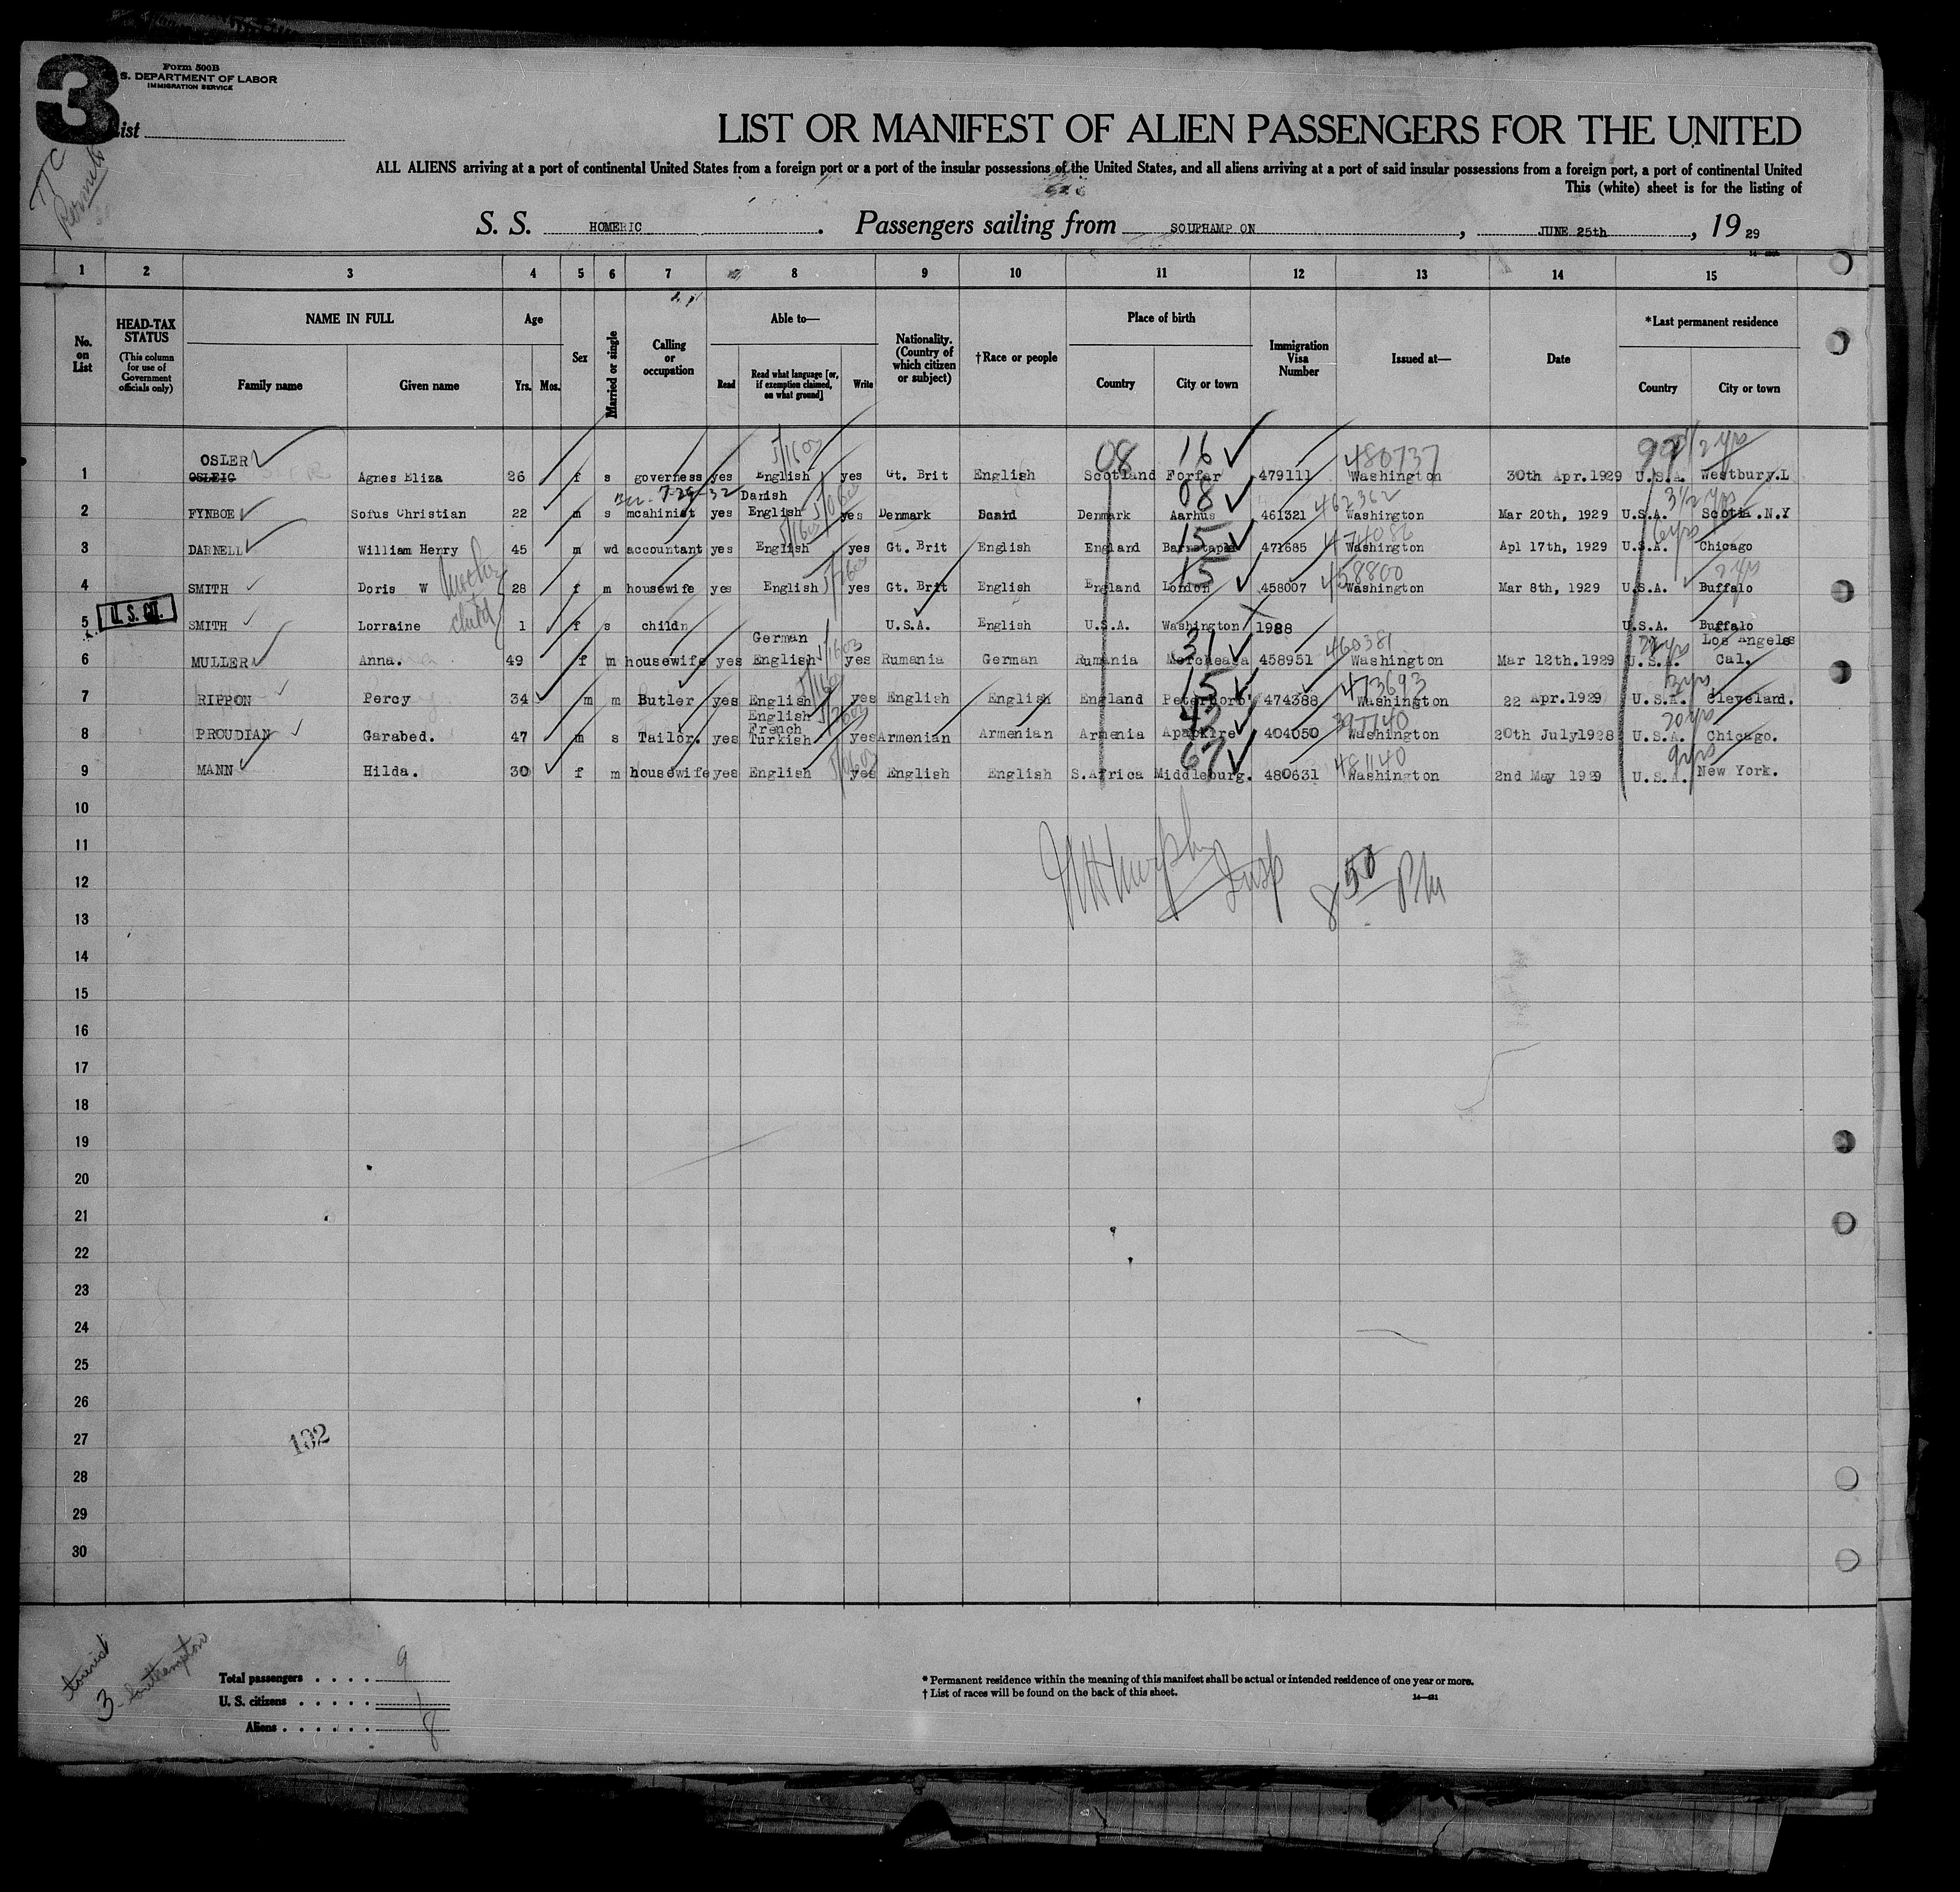 3
Form 500B
S. DEPARTMENT OF LABOR
IMMIGRATION SERVICE
List
LIST OR MANIFEST OF ALIEN PASSENGERS FOR THE UNITED
ALL ALIENS arriving at a port of continental United States from a foreign port or a port of the insular possessions of the United States, and all aliens arriving at a port of said insular possessions from a foreign port, a port of continental United
This (white) sheet is for the listing of
S. S. HOMERIC. Passengers sailing from SOUPHAMP ON, JUNE 25th, 19 29
1 2 3 4 5 6 7 8 9 10 11 12 13 14 15
No. on List
HEAD-TAX STATUS (This column for use of Government officials only)
NAME IN FULL Family name Given name
Age Yrs. Mos.
Sex
Married or single
Calling or occupation
Able to— Read Read what language [or, if exemption claimed, on what ground] Write
Nationality. (Country of which citizen or subject)
†Race or people
Place of birth Country City or town
Immigration Visa Number
Issued at—
Date
*Last permanent residence Country City or town
OSLER 16 480737
1 OSLEIG Agnes Eliza 26 f s governess yes English yes Gt. Brit English 08 Scotland Forfar 479111 Washington 30th Apr.1929 U.S.A. Westbury.L
7-26-32 Danish 08 462362 3 1/2 yrs
2 FYNBOE Sofus Christian 22 m s mcahinist yes English yes Denmark Denmark Aarhus 461321 Washington Mar 20th, 1929 U.S.A. Scotia.N.Y
15 474086 6 yrs
3 DARNELL William Henry 45 m wd accountant yes English yes Gt. Brit English England Barnstaple 471685 Washington Apl 17th, 1929 U.S.A. Chicago
Mother 15 458800
4 SMITH Doris W 28 f m housewife yes English yes Gt. Brit English England London 458007 Washington Mar 8th, 1929 U.S.A. Buffalo
U. S. CIT.
5 SMITH Lorraine child 1 f s childn U.S.A. English U.S.A. Washington 1988 U.S.A. Buffalo
German 31 460381 Los Angeles
6 MULLER Anna. 49 f m housewife yes English yes Rumania German Rumania 458951 Washington Mar 12th.1929 U.S.A. Cal.
15 473693
7 RIPPON Percy 34 m m Butler yes English yes English English England Peterboro' 474388 Washington 22 Apr.1929 U.S.A. Cleveland.
English French 43 397740 20 yrs
8 PROUDIAN Garabed. 47 m s Tailor. yes Turkish yes Armenian Armenian Armenia 404050 Washington 20th July1928 U.S.A. Chicago.
67 481140 9 yrs
9 MANN Hilda. 30 f m housewife yes English yes English English S.Africa Middleburg. 480631 Washington 2nd May 1929 U.S.A. New York.
10
11
12
Insp 8 50 PM
13
14
15
16
17
18
19
20
21
22
23
24
25
26
27
132
28
29
30
tourist
3 - Southampton
Total passengers . . . . 9
U. S. citizens . . . . . 1
Aliens . . . . . . 8
* Permanent residence within the meaning of this manifest shall be actual or intended residence of one year or more.
† List of races will be found on the back of this sheet.